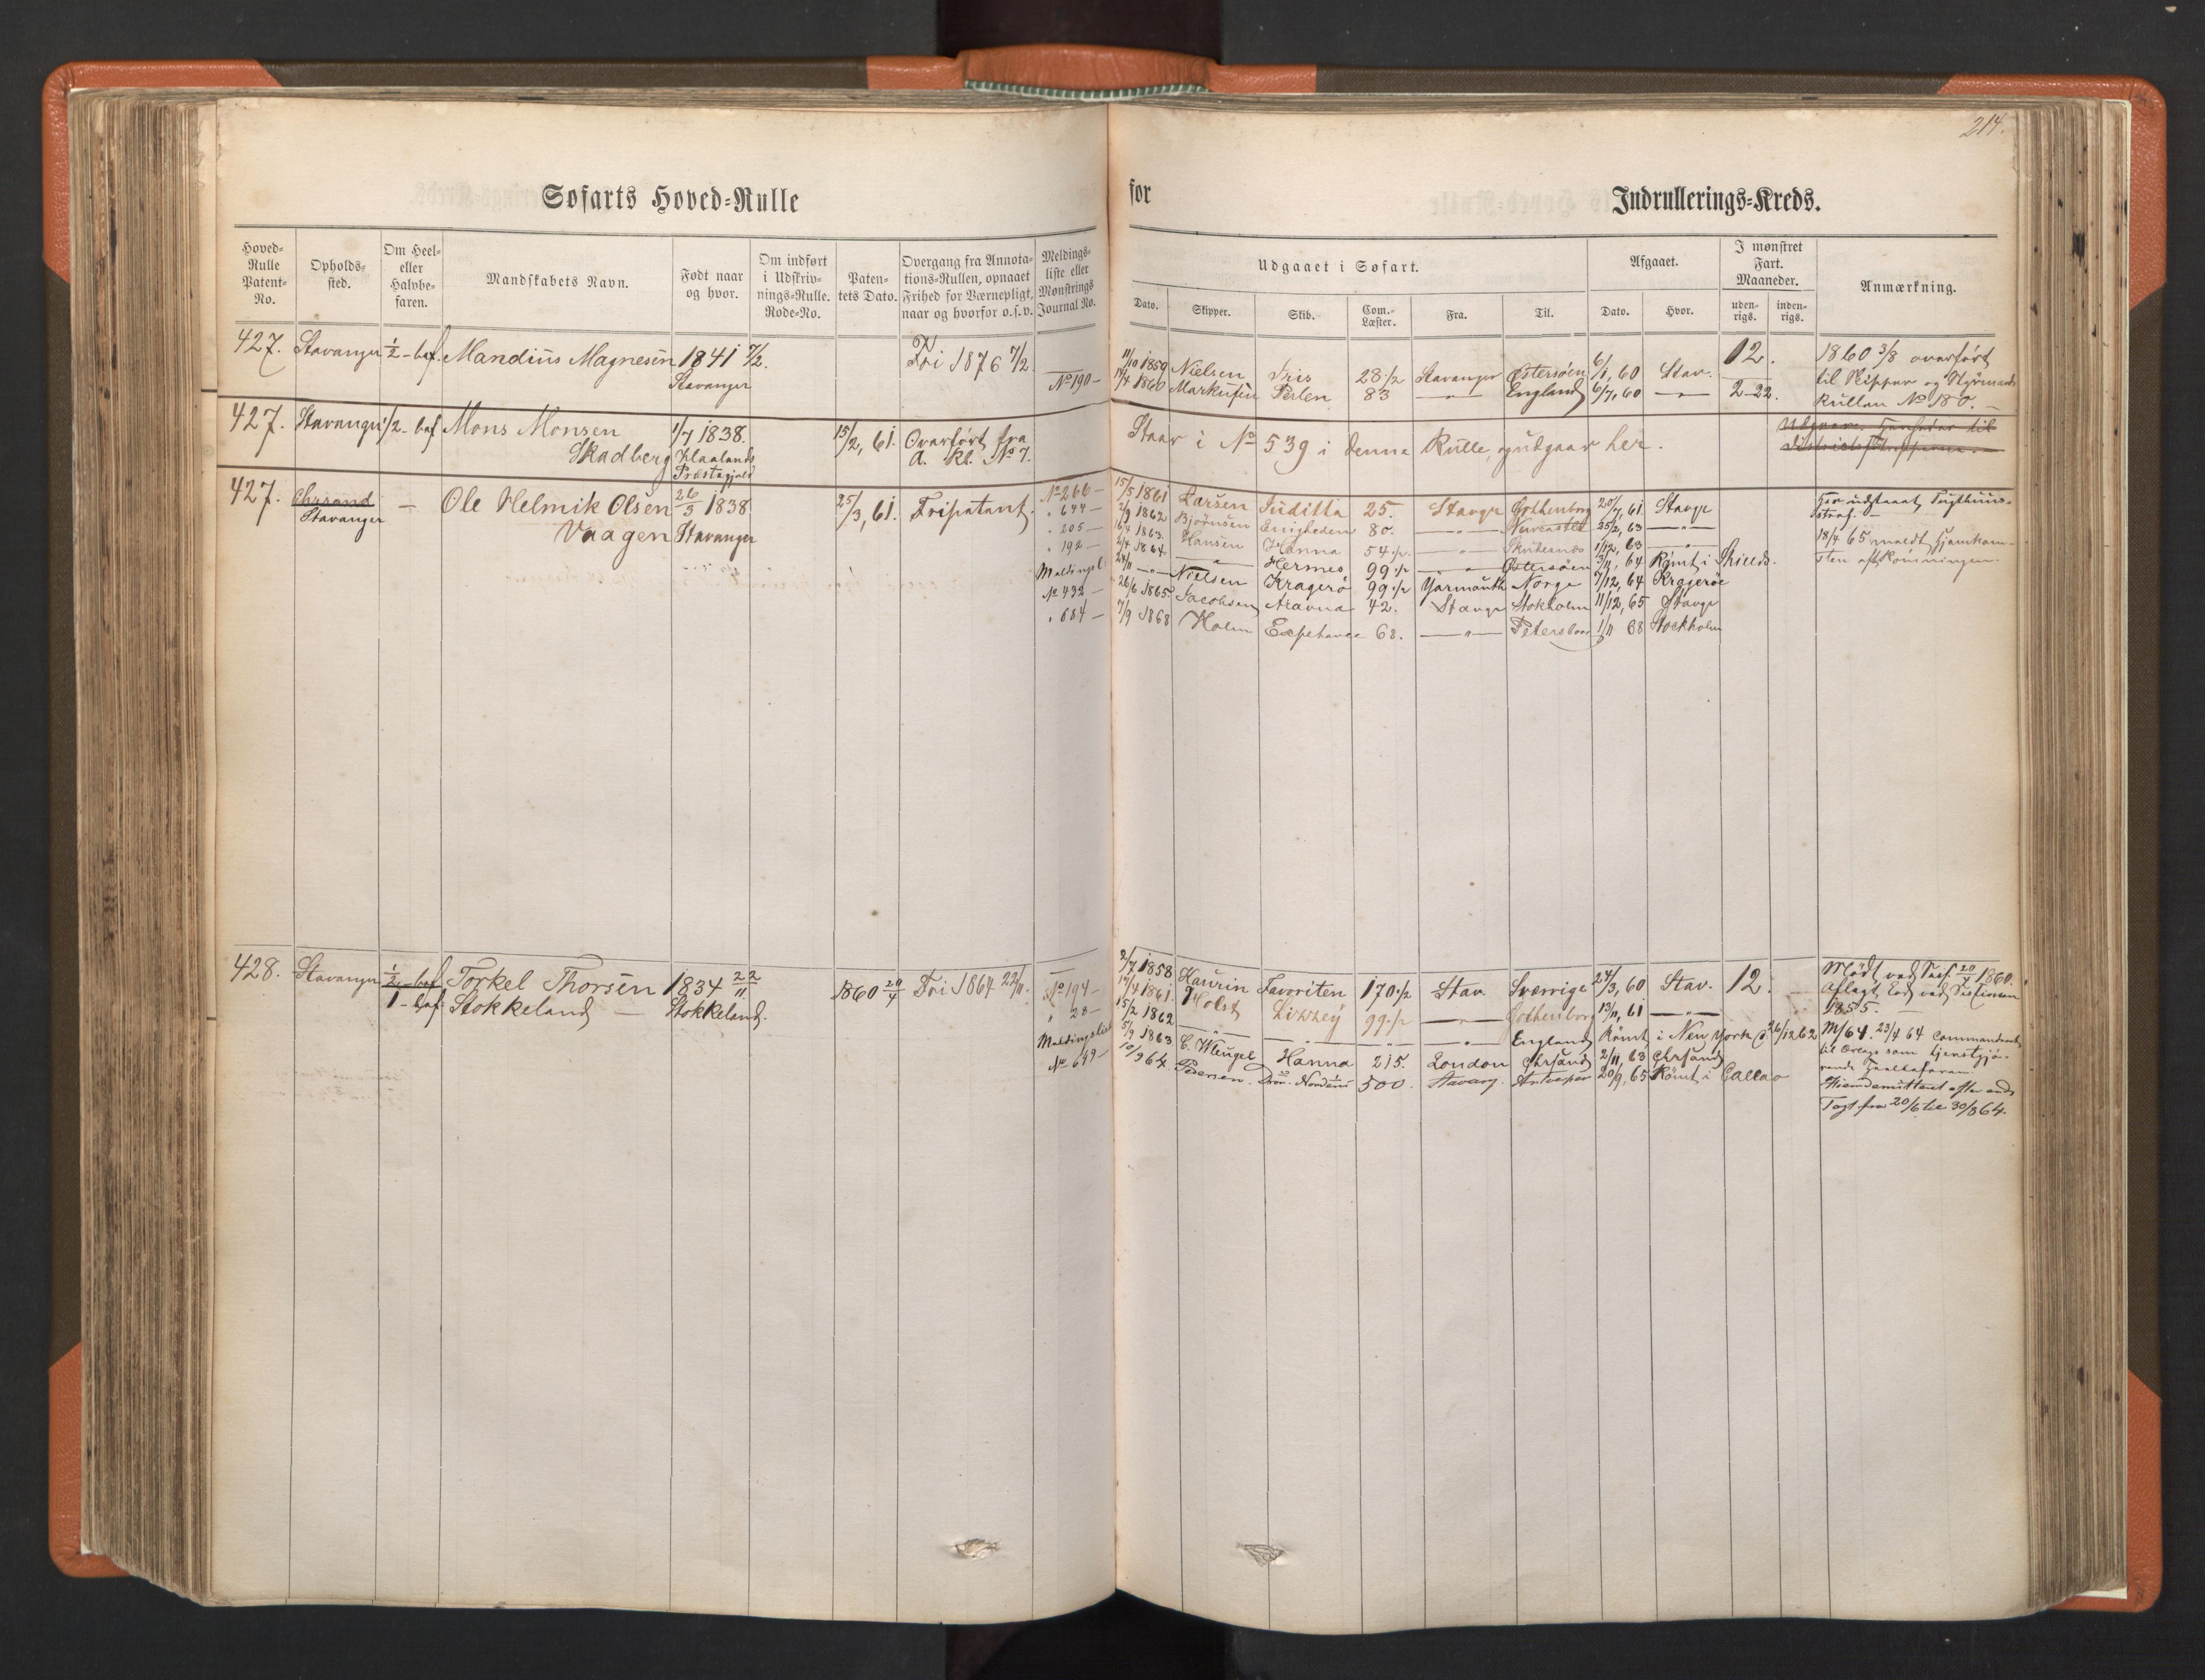 214.
Søfarts Hoved=Rulle
for
Indrullerings=Kreds.
Hoved=Rulle Patent=No.
Opholds=sted.
Om Heel= eller Halvbe=faren.
Mandskabets Navn.
Født naar og hvor.
Om indført i Udskriv=nings=Rulle. Rode=No.
Paten=tets Dato.
Overgang fra Annota=tions=Rullen, opnaaet Frihed for Værnepligt, naar og hvorfor o. s. v.
Meldings=liste eller Mønstrings Journal No.
Udgaaet i Søfart.
Dato.
Skipper.
Skib.
Com.=Læster.
Fra.
Til.
Afgaaet.
Dato.
Hvor.
I mønstret Fart. Maaneder.
uden=rigs.
inden=rigs.
Anmærkning.
427. Stavanger ½ - bef. Mandius Magnesen 1841 7/2. Fri 1876 7/2.
Stavanger
No 190 -
11/10 1859 Nielsen Iris 28 ½ Stavanger Østersøen 6/1, 60 Stav. 12.
1860 Markusen Perlen 83 —"— England 6/7, 60 —"— 2-22.
1860 3/8 overført
til Skipper og Styrmands
Rullen No 180. —
427. Stavanger ½ - bef Mons Monsen 1/7 1838. 15/2, 61. Overført fra
Skadberg Klaalands A. Kl. No 7.
Præstegjeld
Staar i No 539 i denne Rulle, og udgaar her.
427. Chrsand — Ole Helmik Olsen 26/3 1838 25/3, 61. Fripatent.
Stavanger Vaagen Stavanger
No 266 -
" 644 -
" 205 -
" 192 -
Meldingsl
No 432 -
" 684 -
15/5 1861 Larsen Juditta 25. Stavgr Gothenborg 20/7, 61 Stavgr
2/9 1862 Bjørnsen Enigheden 80. —"— Newcastle 25/2, 63 —"—
16/4 1863. Hansen Hanna 54 ½. —"— Skudesnes 1/12, 63 —"—
2/4 1864. —"— Hermes 99 ½ —"— Østersøen 3/11, 64 Rømt i Shields.
24/11 —"— Nielsen Kragerø 99 ½ Yarmouth Norge 7/12, 64 Kragerøe
26/6 1865. Jacobsen 42. Stavgr Stokholm 11/12, 65 Stavgr
7/9 1868 Holm 68. —"— 1/11 68 Stockholm
Har udstaaet Tugthuus=
straf. —
18/4 65 meldt hjemkom-
sten
428. Stavanger ½ - bef Torkel Thorsen 1834 22/11 1860 20/4 Fri 1864 22/11.
1 - bef. Stokkeland — Stokkeland.
No 194 -
" 28 -
Meldingsliste
No 649 -
2/7 1858 Haurin Favoriten 170 ½ Stav. Sverrige 24/3, 60 Stav. 12.
17/4 1861. Holst Lizzey 99 ½ —"— Gothenborg 13/11, 61 —"—
15/2 1862 —"— —"— —"— —"— England Rømt i New York d. 26/12 62
5/9 1863 C. Wengel Hanna 215. London Chrsand 2/11, 63 Chrsand
10/9 64. Pedersen. 500. Stavang. Antverpen 20/9, 65 Rømt i Callao
Mødt ved Sess. 20/7 1860.
Aflagt Eed ved Sessionen
1855. —
M/64. 23/4 64 Commanderet
til Orlogs som tjenstgjø-
rende
Hjemdemitteret efter endt
Togt fra 20/6 til 30/8 64.